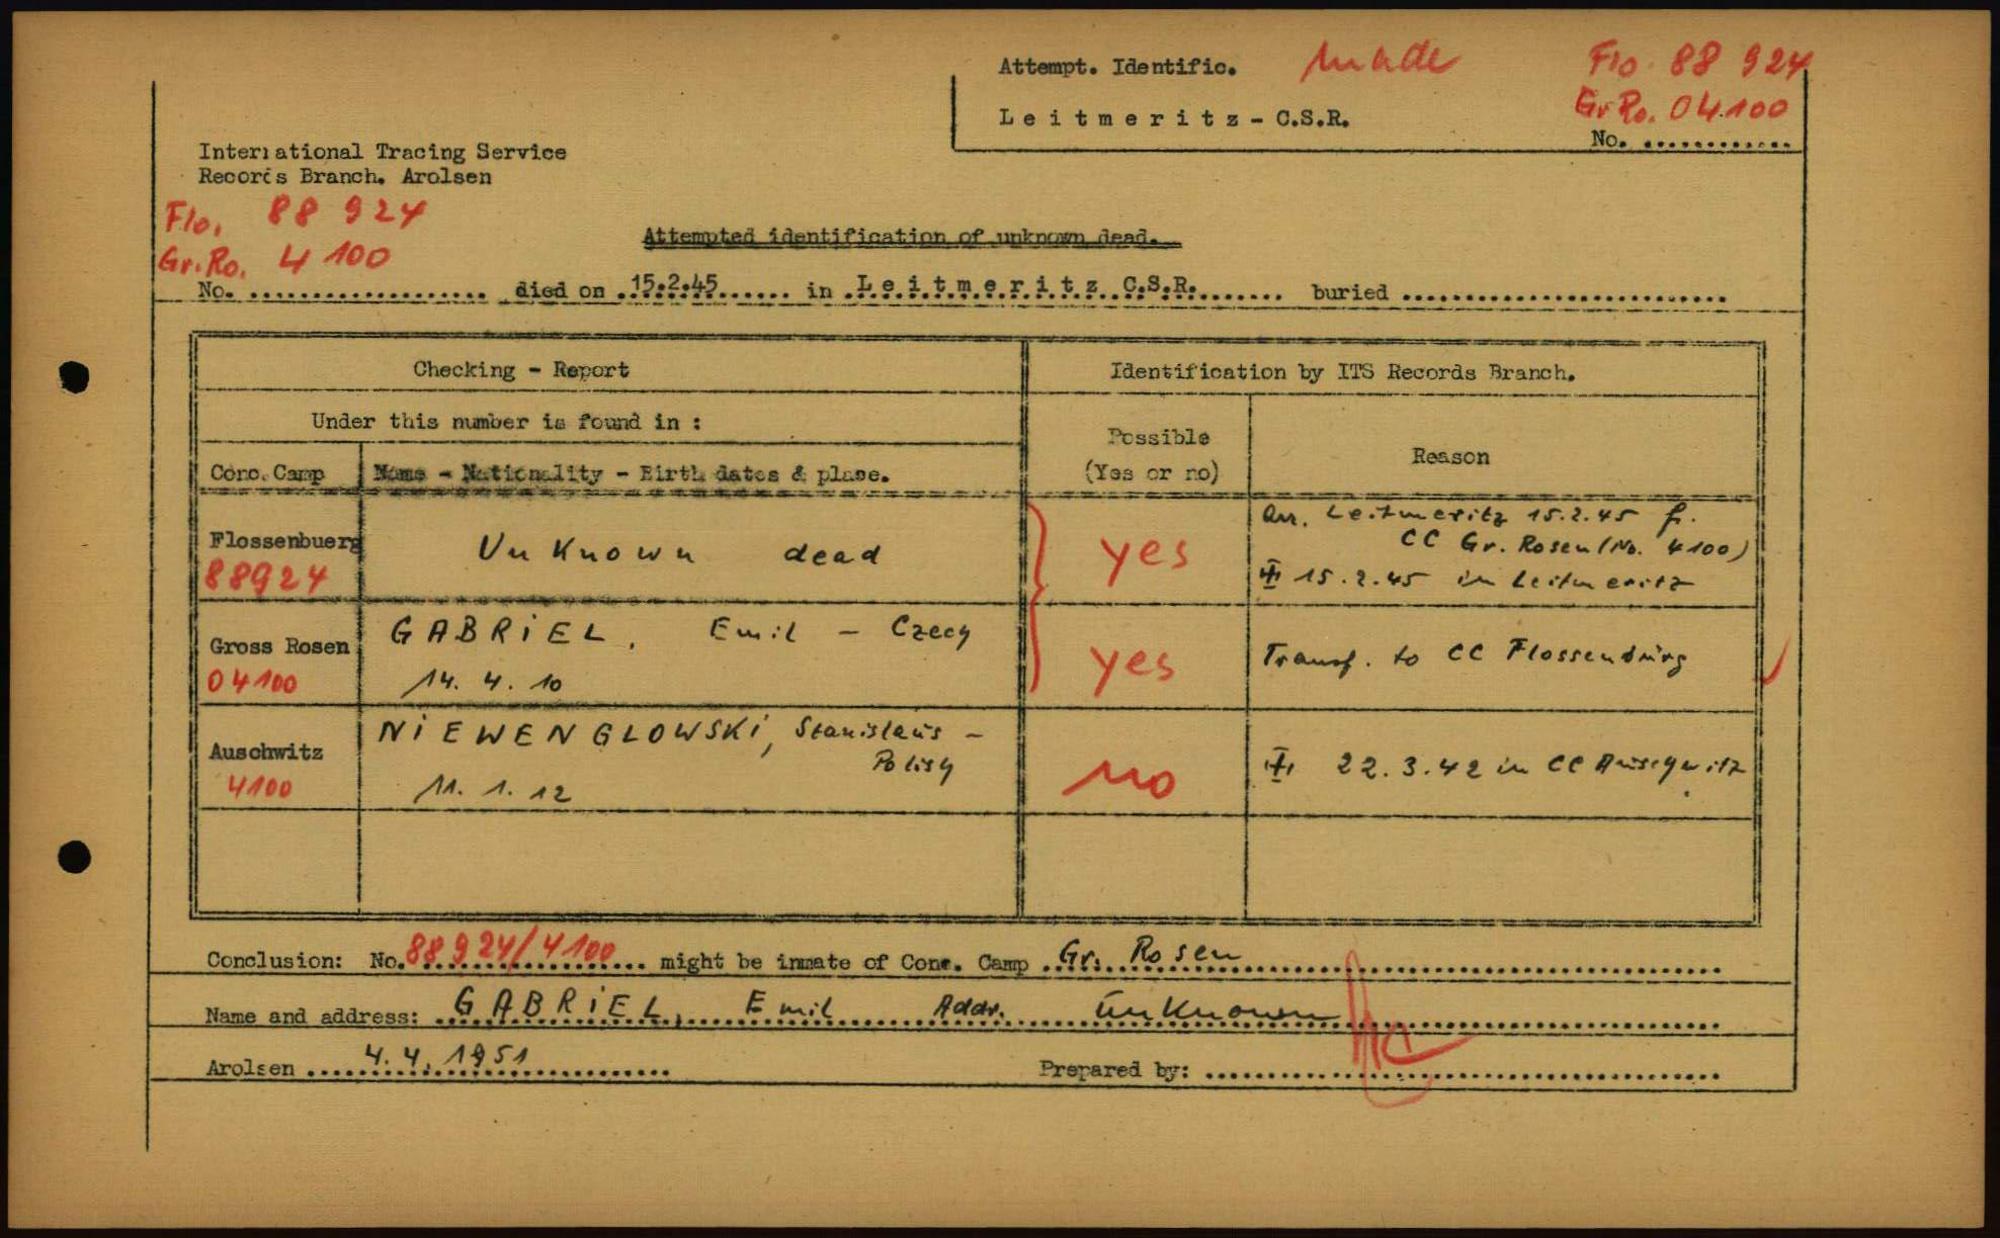 Attempt. Identific. made Flo. 88 924
Leitmeritz - C.S.R. Gr. Ro. 04.100
No. ............
International Tracing Service
Records Branch. Arolsen
Flo. 88 924
Gr. Ro. 4 100
Attempted identification of unknown dead.
No. .................. died on 15.2.45 in Leitmeritz C.S.R. buried ..........................
Checking - Report
Identification by ITS Records Branch.
Under this number is found in :
Possible
(Yes or no)
Reason
Conc. Camp
Name - Nationality - Birth dates & place.
Flossenbuerg
88924
Unknown dead
yes
Arr. Leitmeritz 15.2.45 f.
CC Gr. Rosen (No. 4100)
15.2.45 in Leitmeritz
Gross Rosen
04100
GABRIEL, Emil - Czech
14. 4. 10
yes
Transf. to CC Flossenbürg
Auschwitz
4100
NIEWENGLOWSKI, Stanislaus -
Polish
11. 1. 12
no
22.3.42 in CC Auschwitz
Conclusion: No. 88924/4100 might be inmate of Conc. Camp Gr. Rosen
Name and address: GABRIEL, Emil Addr. unknown
Arolsen 4.4.1951
Prepared by: ..........................